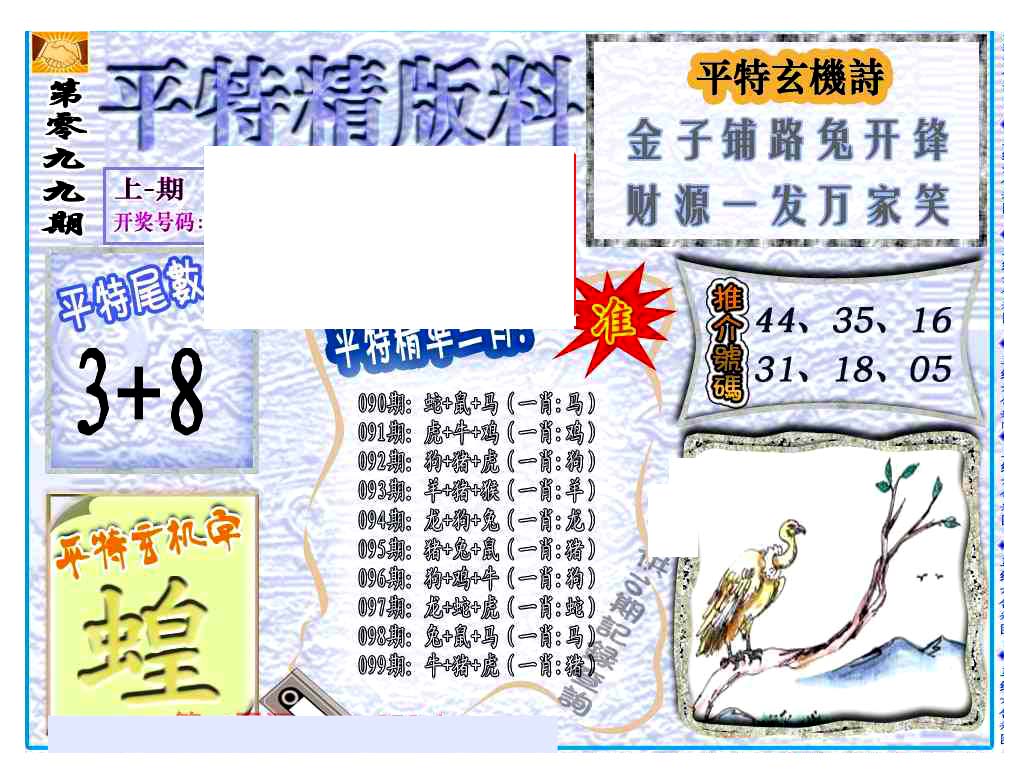 第零九九期
平特精版料
上-期
开奖号码:
平特玄機詩
金子铺路兔开锋
财源一发万家笑
平特尾數
3+8
推介號碼
44、35、16
31、18、05
准
平特精準一肖:
090期: 蛇+鼠+马(一肖:马)
091期: 虎+牛+鸡(一肖:鸡)
092期: 狗+猪+虎(一肖:狗)
093期: 羊+猪+猴(一肖:羊)
094期: 龙+狗+兔(一肖:龙)
095期: 猪+兔+鼠(一肖:猪)
096期: 狗+鸡+牛(一肖:狗)
097期: 龙+蛇+虎(一肖:蛇)
098期: 兔+鼠+马(一肖:马)
099期: 牛+猪+虎(一肖:猪)
期記錄查詢
平特玄机字
蝗